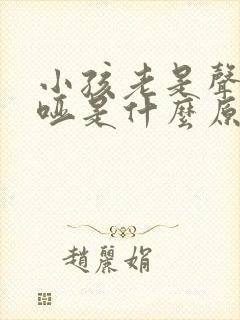 小孩老是聲
啞是什麼原
趙麗娟